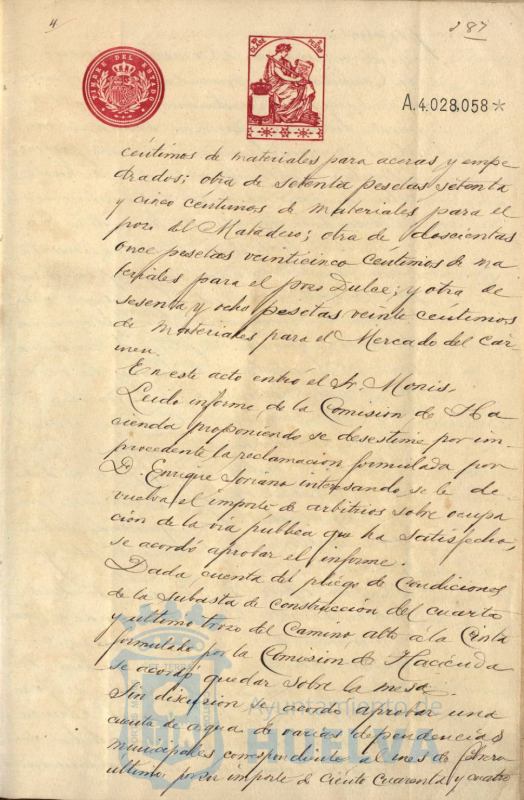 4
287
TIMBRE DEL ESTADO
A.4.028,058*
centimos de materiales para aceras y empe
drados; otra de setenta pesetas setenta
y cinco centimos de materiales para el
pozo del Matadero; otra de doscientas
once pesetas veinticinco centimos de ma
teriales para el pozo Dulce; y otra de
sesenta y ocho pesetas veinte centimos
de materiales para el Mercado del Car
men.
En este acto entró el Sr. Monis.
Leido informe de la Comision de Ha
cienda proponiendo se desestime por im-
procedente la reclamacion formulada por
D. Enrique Soriano interesando se le de
vuelva el importe de arbitrios sobre ocupa
cion de la via publica que ha satisfecho,
se acordó aprobar el informe.
Dada cuenta del pliego de condiciones
de la subasta de construcción del cuarto
y ultimo trozo del Camino alto á la Cinta
formulado por la Comision de Hacienda
se acordó quedar sobre la mesa.
Sin discusion se acordó aprobar una
cuenta de agua de varias dependencias
municipales correspondiente al mes de
ultimo, por su importe de ciento cuarenta y cuatro
Ayuntamiento de
HUELVA